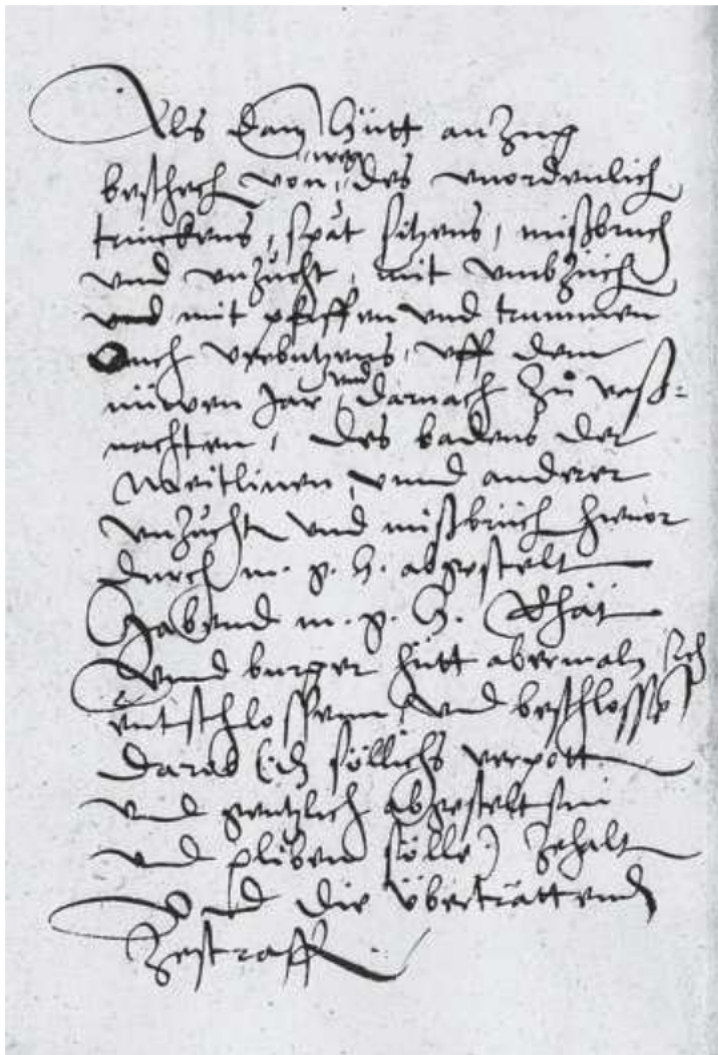 Als dann hütt anzug
beschech von weg des unordenlich
trinckens, spät sitzens, mißbruch
unnd unzucht, mit umbzüch
unnd mit pfiffen unnd trummen
Ouch verbutzens, uff dem
nüwen Jar, unnd darnach zů vaß-
nachten, des badens der
Meitlinen, unnd anderer
unzucht unnd mißbrüch hievor
durch m. g. h. abgestelt
Habend m. g. H. Rhät
unnd burger hütt abermaln sich
entschlossenn unnd beschlosse
darob (das söllichs verpott
unnd gentzlich abgestelt sin
unnd pliben sölle) zehalt
unnd die überträttend
zestraff